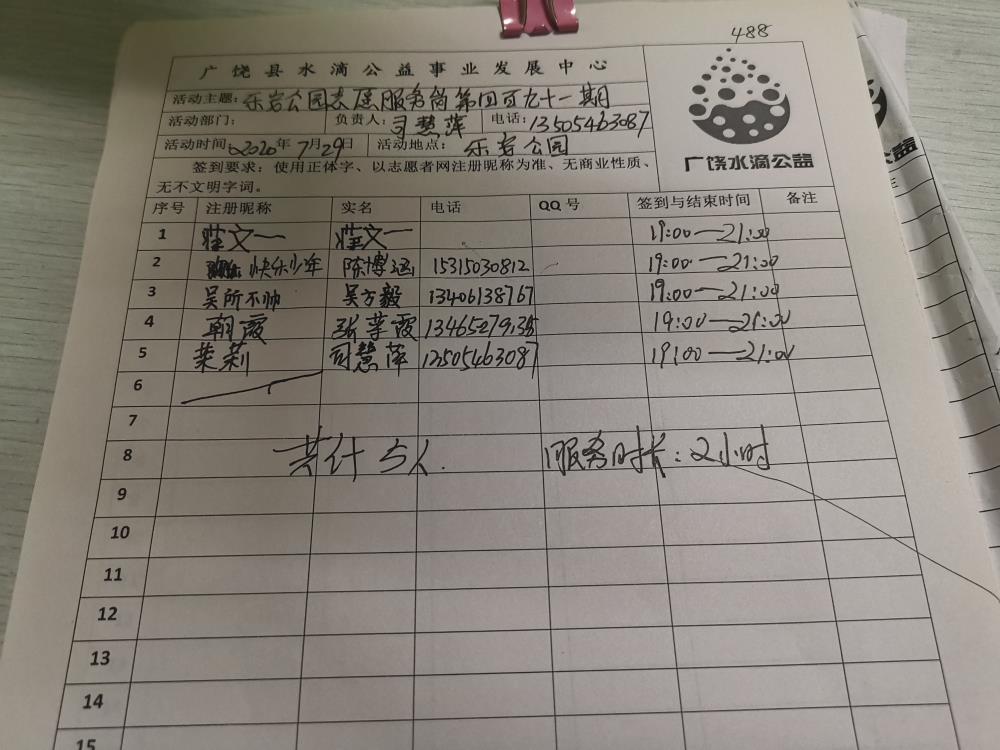 488
广饶县水滴公益事业发展中心
活动主题：乐安公园志愿服务岗第四百九十一期
活动部门： 负责人：司慧萍 电话：13505463087
活动时间 2020年7月29日 活动地点：乐安公园
签到要求：使用正体字、以志愿者网注册昵称为准、无商业性质、
无不文明字词。
广饶水滴公益
序号 注册昵称 实名 电话 QQ号 签到与结束时间 备注
1 文一 文一 19:00—21:00
2 快乐少年 陈博涵 15315030812 19:00—21:00
3 吴所不帅 吴方毅 13406138767 19:00—21:00
4 朝霞 张苹霞 19:00—21:00
5 茉莉 司慧萍 13505463087 19:00—21:00
6
7
8 共计5人. 服务时长：2小时
9
10
11
12
13
14
15